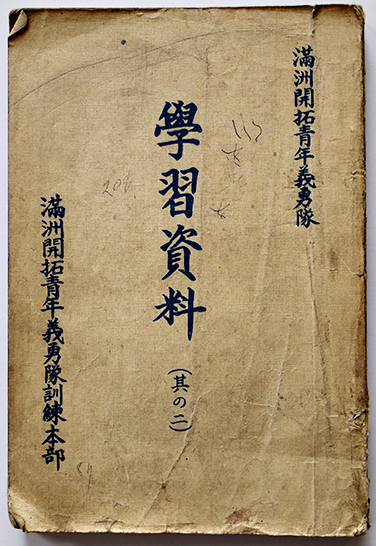 滿洲開拓青年義勇隊
學習資料
(其の二)
滿洲開拓青年義勇隊訓練本部